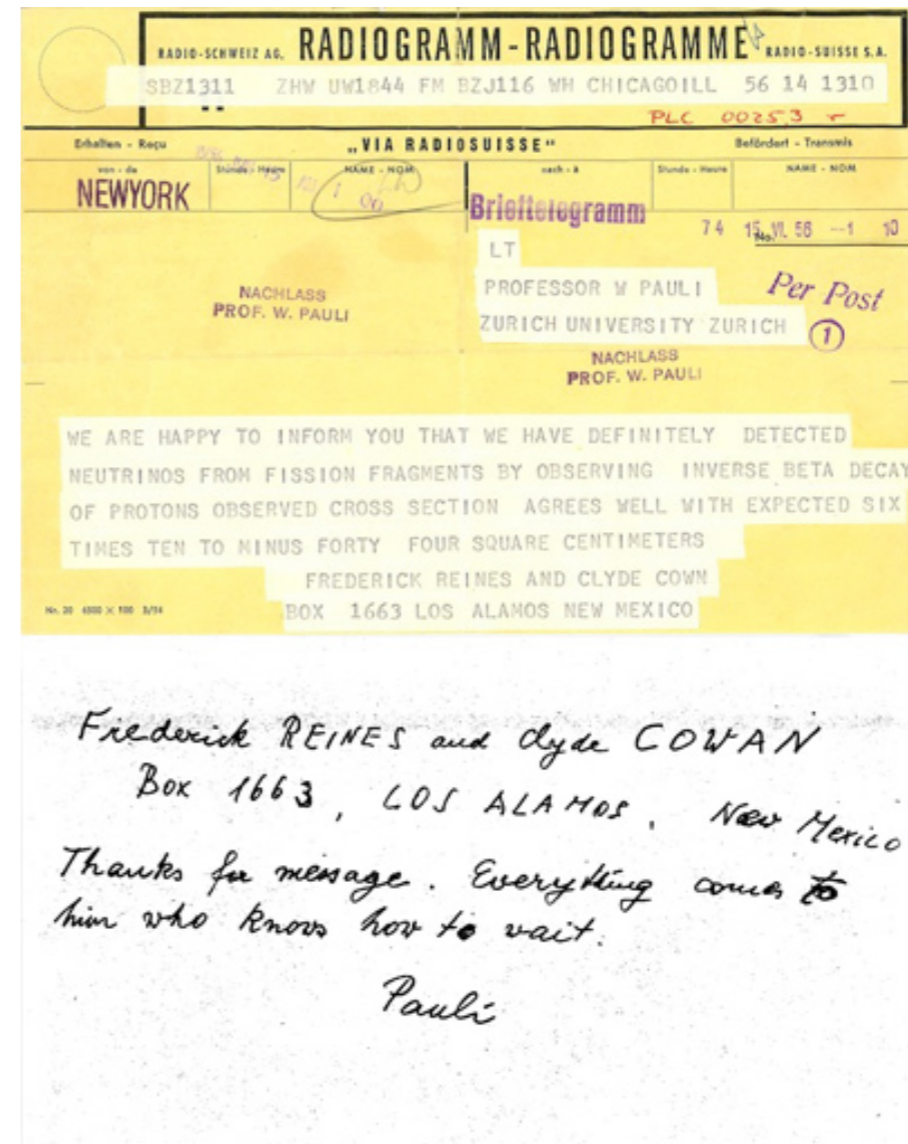 RADIO-SCHWEIZ AG. RADIOGRAMM-RADIOGRAMME RADIO-SUISSE S.A.
SBZ1311 ZHW UW1844 FM BZJ116 WH CHICAGOILL 56 14 1310
PLC 00253
Erhalten - Reçu „VIA RADIOSUISSE" Befördert - Transmis
von - de Stunde - Heure NAME - NOM nach - à Stunde - Heure NAME - NOM
NEWYORK
Brieftelegramm
74 15. VI. 56 --1 10
LT
PROFESSOR W PAULI
Per Post
NACHLASS
PROF. W. PAULI
ZURICH UNIVERSITY ZURICH
1
NACHLASS
PROF. W. PAULI
WE ARE HAPPY TO INFORM YOU THAT WE HAVE DEFINITELY DETECTED
NEUTRINOS FROM FISSION FRAGMENTS BY OBSERVING INVERSE BETA DECAY
OF PROTONS OBSERVED CROSS SECTION AGREES WELL WITH EXPECTED SIX
TIMES TEN TO MINUS FORTY FOUR SQUARE CENTIMETERS
FREDERICK REINES AND CLYDE COWN
BOX 1663 LOS ALAMOS NEW MEXICO
Frederick REINES and Clyde COWAN
Box 1663, LOS ALAMOS, New Mexico
Thanks for message. Everything comes to
him who knows how to wait.
Pauli